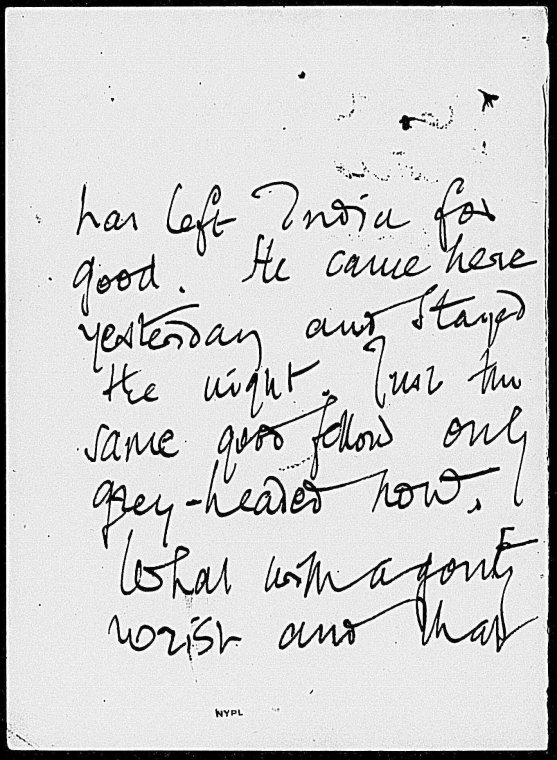 has left India for
good. He came here
yesterday and stayed
the night. Just the
same good fellow only
grey-headed now.
What with a gouty
wrist and that
NYPL